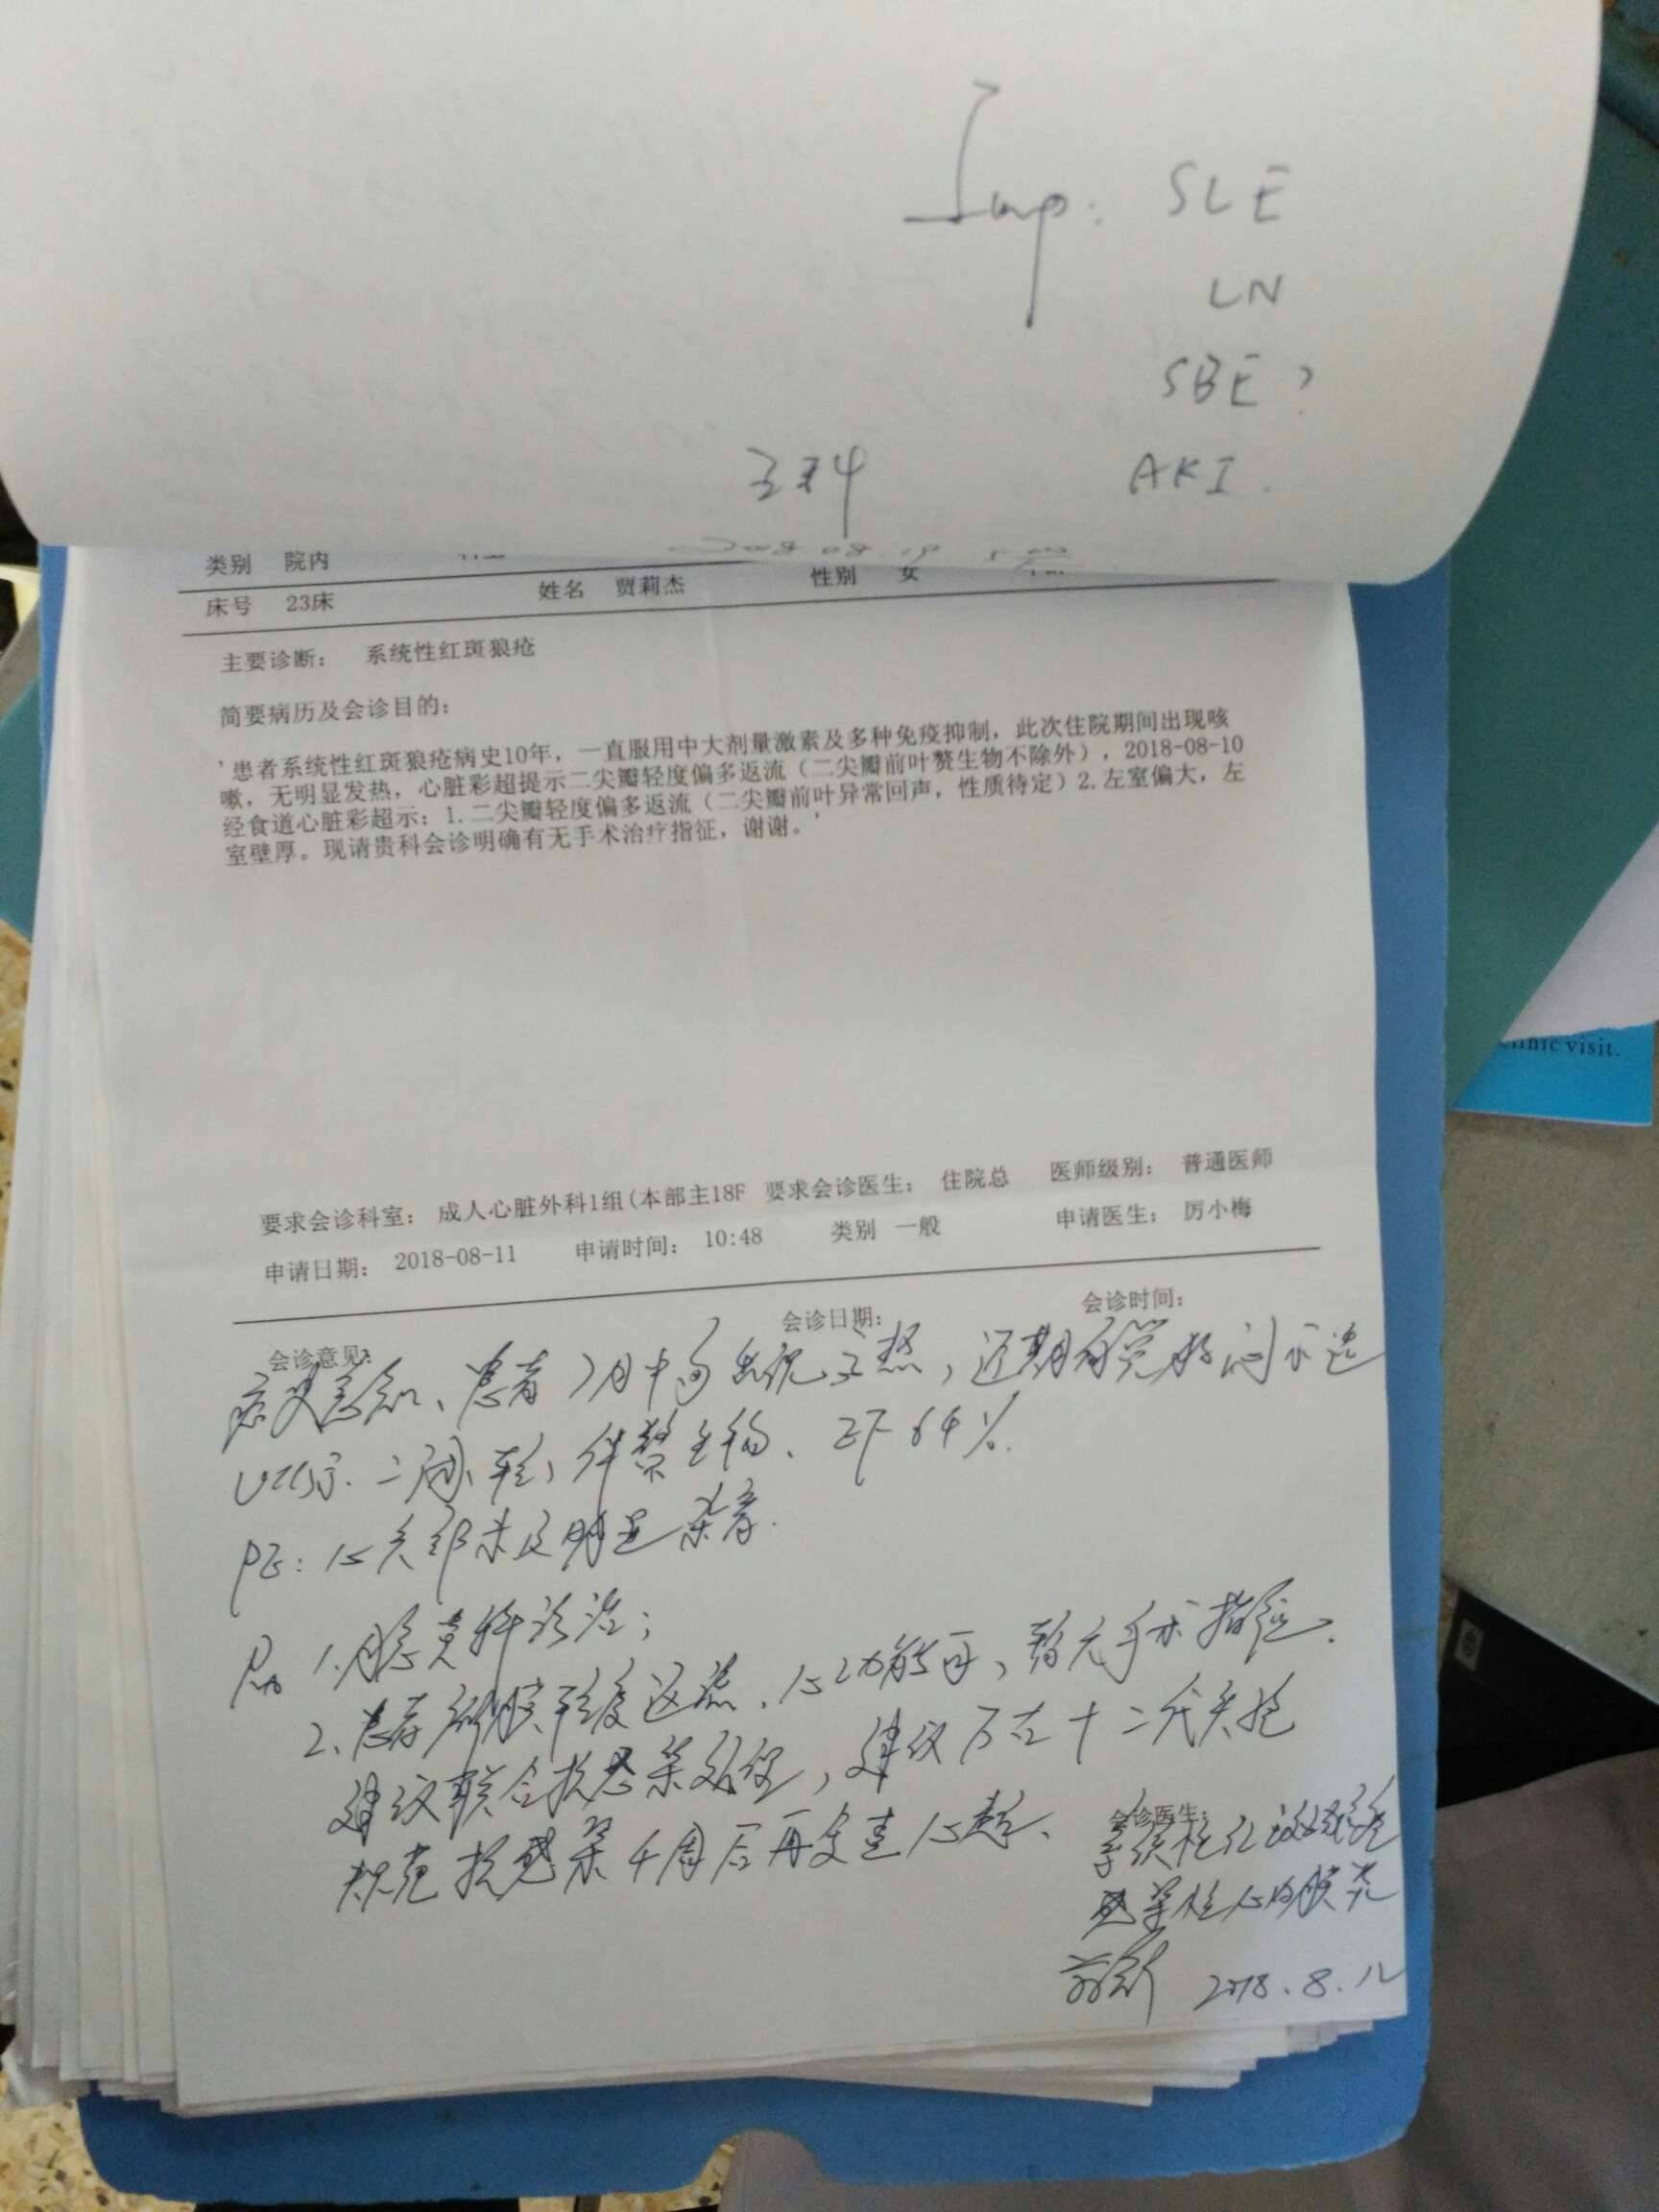 Imp: SLE
LN
SBE?
AKI.
类别 院内
床号 23床 姓名 贾莉杰 性别 女
主要诊断: 系统性红斑狼疮
简要病历及会诊目的:
'患者系统性红斑狼疮病史10年，一直服用中大剂量激素及多种免疫抑制，此次住院期间出现咳
嗽，无明显发热，心脏彩超提示二尖瓣轻度偏多返流（二尖瓣前叶赘生物不除外），2018-08-10
经食道心脏彩超示：1.二尖瓣轻度偏多返流（二尖瓣前叶异常回声，性质待定）2.左室偏大，左
室壁厚。现请贵科会诊明确有无手术治疗指征，谢谢。'
要求会诊科室: 成人心脏外科1组(本部主18F 要求会诊医生: 住院总 医师级别: 普通医师
申请日期: 2018-08-11 申请时间: 10:48 类别 一般 申请医生: 厉小梅
会诊意见: 会诊日期: 会诊时间:
病史悉知、患者7月中旬出现发热，近期自觉胸闷不适
UCG示: 二闭, 轻, 伴赘生物、EF 64%.
PE: 心尖部未及明显杂音.
1. 感染科诊治；
2、患者瓣膜轻度返流、心功能可，暂无手术指征.
建议联合抗感染处理，建议万古+二代头孢
抗感染4周后再复查心超、
会诊医生:
感染性心内膜炎
2018.8.12
clinic visit.